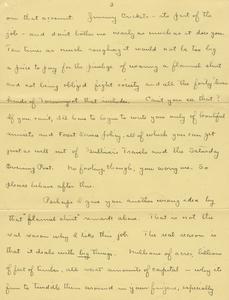 2
on that account. Jiminy Crickets - its part of the
job - and don't bother me nearly as much as it does you.
Ten times as much roughing it would not be too big
a price to pay for the privilege of wearing a flannel shirt
and not being obliged fight society and all the forty'leven
kinds of that includes. Can't you see that?
If you can't, I'll have to begin to write you only of beautiful
sunsets and Forest Service policy, all of which you can get
just as well out of Travels and the Saturday
Evening Post. No fooling, though, you worry me. So
please behave after this.
Perhaps I gave you another wrong idea by
that "flannel shirt" remark above. That is not the
real reason why I like this job. The real reason is
that it deals with big things. Millions of acres, billions
of feet of timber, all vast amounts of capital - why its
fun to twiddle them around in your fingers, especially